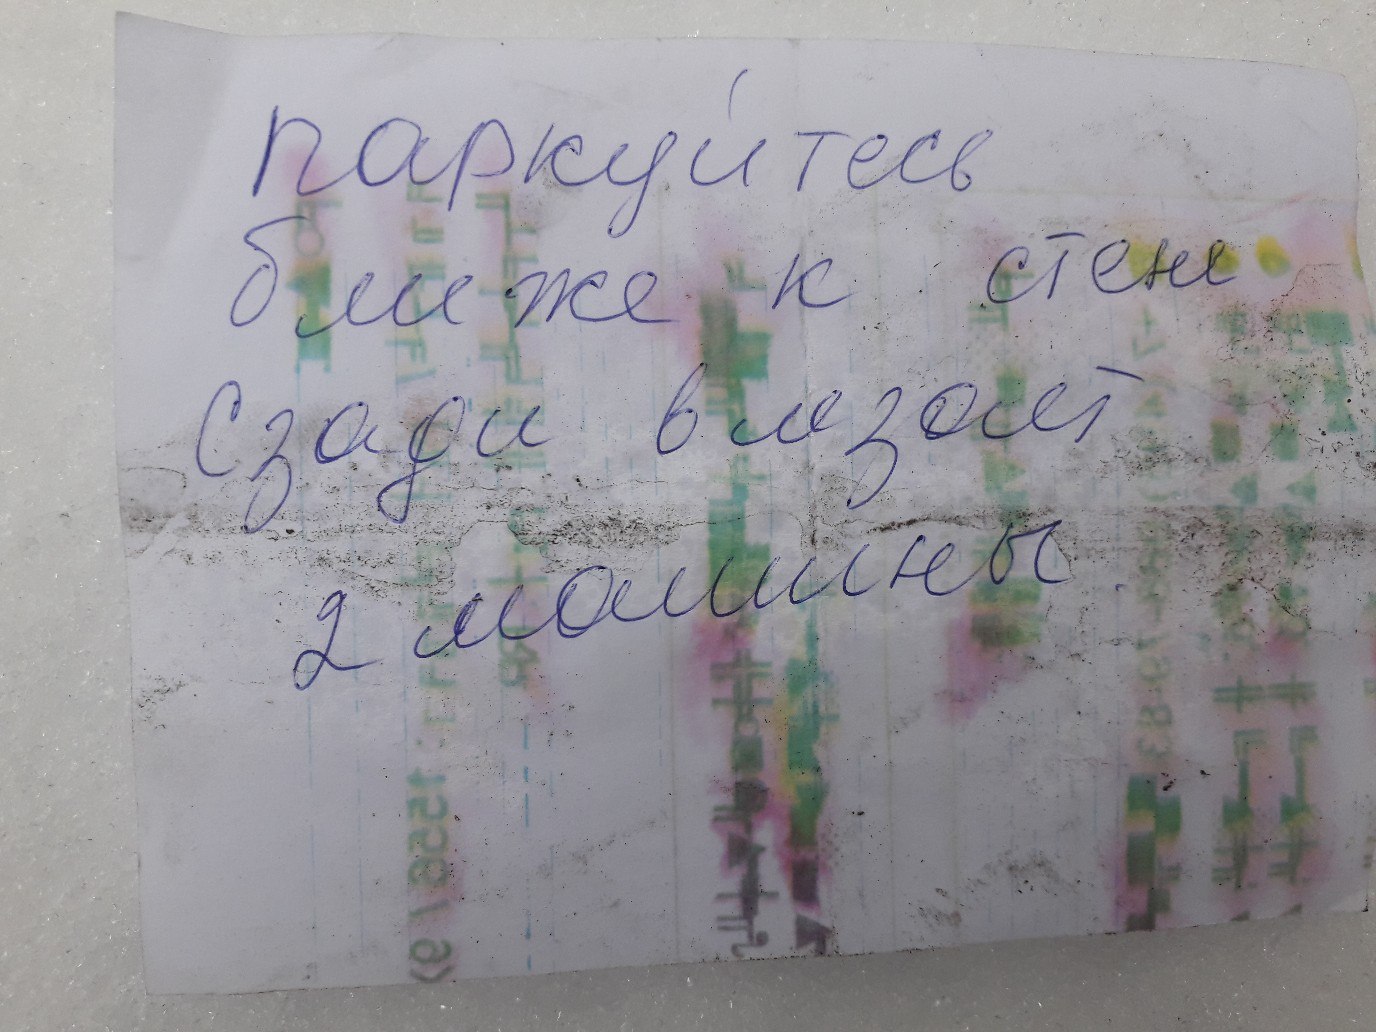 паркуйтесь
ближе к стене
сзади влязает
2 машины